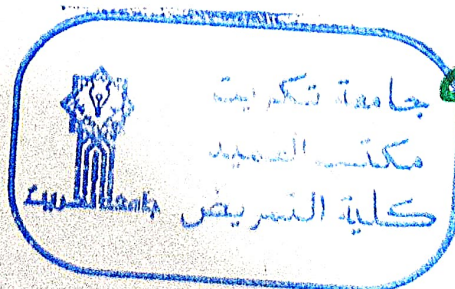 جامعة تكريت
مكتب العميد
كلية التمريض